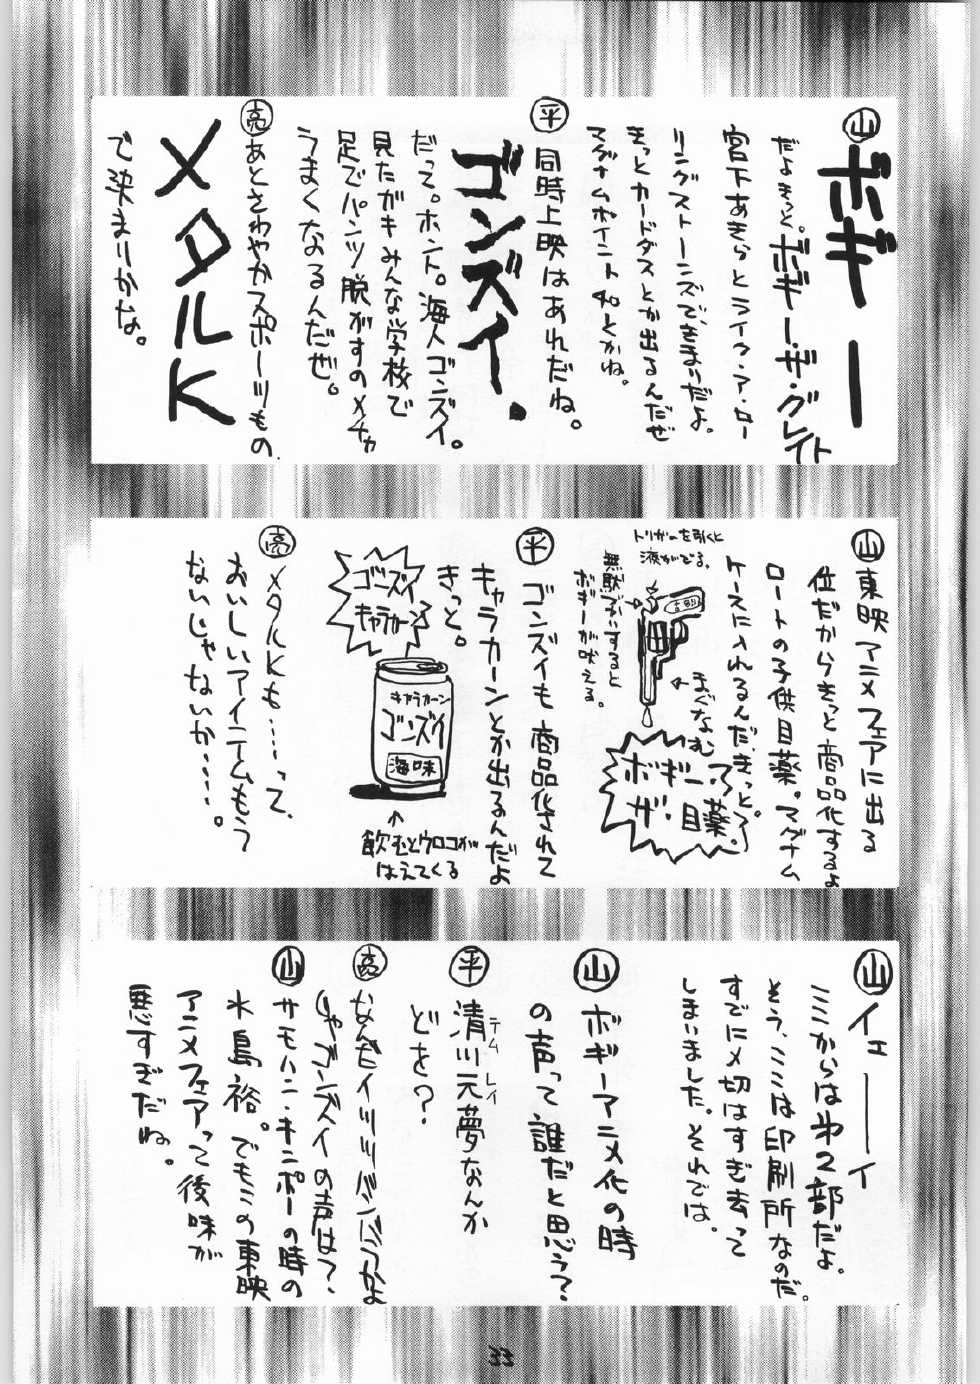 山 ボギー
だよきっと。ボギー・ザ・グレイト
宮下あきらとライク・ア・ロー
リングストーンズできまりだよ。
きっとカードダスとか出るんだぜ
マグナムポイント40とかね。
平 同時上映はあれだね。
ゴンズイ.
だって。ホント。海人ゴンズイ。
見たがきみんな学校で
足でパンツ脱がすのメチャ
うまくなるんだぜ。
亮 あとさわやかスポーツもの
メタルK
で決まりかな。
山 東映アニメフェアに出る
位だからきっと商品化するよ
ロートの子供目薬。マグナム
ケースに入れるんだ、きっと。
トリガーを引くと
液がでる。
無駄づかいすると
ボギーが吠える。
まぐなむ
ボギー・
ザ・目薬.
平 ゴンズイも商品化されて
キャラカーンとか出るんだよ
きっと。
ゴーズイ
キャラカーン
キャラカーン
ゴンズイ
海味
↑
飲むとウロコが
はえてくる
亮 メタルKも……って、
おいしいアイテムもう
ないじゃないか……。
山 イェーイ
ミミからは第2部だよ。
そう、ミミは印刷所なのだ。
すでに〆切はすぎ去って
しまいました。それでは。
山 ボギーアニメ化の時
の声って誰だと思う?
平 清川元夢なんか
テムレイ
どを?
亮 なんだイッツバンバンかよ
じゃゴンズイの声は?
山 サモハン・キンポーの時の
水島裕。でもミの東映
アニメフェアって後味が
悪すぎだね。
33